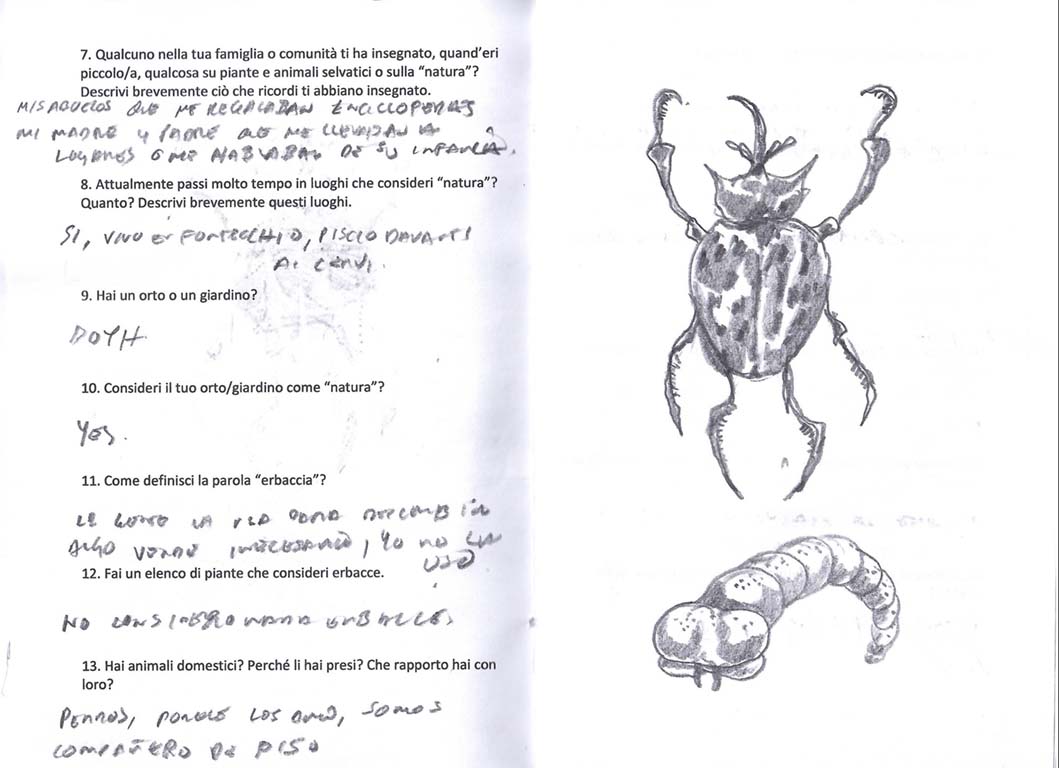 7. Qualcuno nella tua famiglia o comunità ti ha insegnato, quand'eri
piccolo/a, qualcosa su piante e animali selvatici o sulla "natura"?
Descrivi brevemente ciò che ricordi ti abbiano insegnato.
MIS ABUELOS QUE ME REGALABAN ENCICLOPEDIAS
MI MADRE Y PADRE QUE ME LLEVABAN A
LUGARES O ME HABLABAN DE SU INFANCIA.
8. Attualmente passi molto tempo in luoghi che consideri "natura"?
Quanto? Descrivi brevemente questi luoghi.
SI, VIVO EN FONTECCHIO, PISCIO DAVANTI
AI CERVI.
9. Hai un orto o un giardino?
BOTH.
10. Consideri il tuo orto/giardino come "natura"?
YES.
11. Come definisci la parola "erbaccia"?
LA
ALGO VERDE INNECESARIO, YO NO LA
USO
12. Fai un elenco di piante che consideri erbacce.
NO CONSIDERO NADA ERBACCE
13. Hai animali domestici? Perché li hai presi? Che rapporto hai con
loro?
PERROS, PORQUE LOS AMO, SOMOS
COMPAÑERO DE PISO